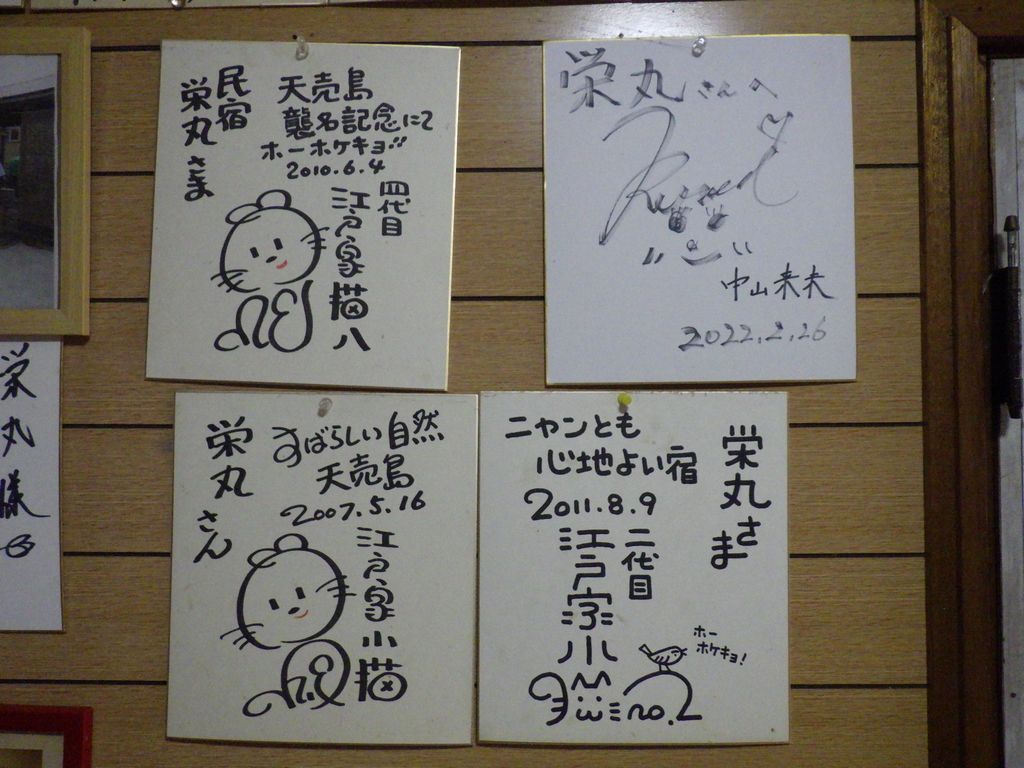 民宿
栄丸さま
天売島
襲名記念にて
ホーホケキョ!!
2010.6.4
四代目
江戸家猫八
栄丸さんへ
中山来夫
2022.2.26
栄丸様
栄丸さん
すばらしい自然
天売島
2007.5.16
江戸家小猫
栄丸さま
ニャンとも
心地よい宿
2011.8.9
二代目
江戸家小猫
no.2
ホー
ホケキョ!